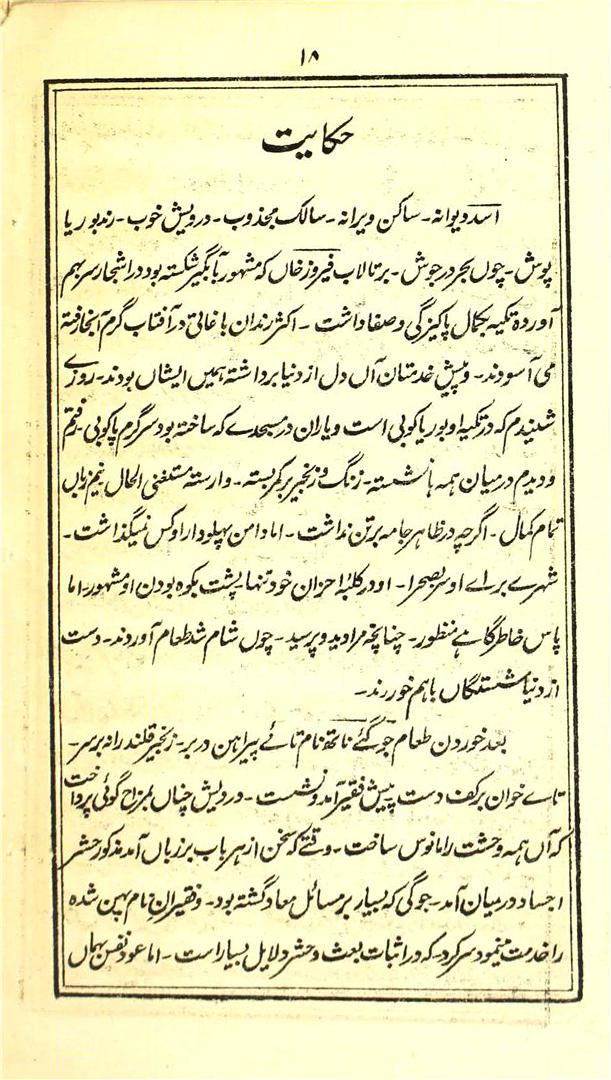 ۱۸
حکایت
اسد دیوانہ - ساکن ویرانہ - سالک مجذوب - درویش خوب - رند بوریا
پوش - چوں بحر در جوش - بر تالاب فیروز خاں کہ مشہور بآبگیر شکستہ بود در اشجار سر بہم
آوردہ تکیہ بکمال پاکیزگی و صفا داشت - اکثر رندان باغاتی در آفتاب گرم آنجا رفتہ
می آسودند - و پیش خدمتان آں دل از دنیا برداشتہ ہمیں ایشاں بودند - روزے
شنیدم کہ در تکیہ او بوریا کوبی است و یاران در مسجدے کہ ساختہ بود سرگرم پا کوبی - رفتم
و دیدم درمیان ہمہ ہا نشستہ - زنگ و زنجیر بر کمر بستہ - وارستہ مستغنی الحال نیم زباں
تمام کمال - اگرچہ در ظاہر جامہ بر تن نداشت - اما دامن پہلودار او کس نمیگذاشت -
شہرے براے او سر بصحرا - او در کلبۂ احزان خود تنہا - پشت بکوہ بودن او مشہور - اما
پاس خاطر گاہے منظور - چنانچہ مرا دید و پرسید - چوں شام شد طعام آوردند - دست
از دنیا شستگاں باہم خوردند -
بعد خوردن طعام جوگئے ناتھ نام تائے پیراہن در بر - زنجیر قلندرانہ بر سر -
تاے خوان بر کف دست پیش فقیر آمد و نشست - درویش چناں بمزاح گوئی پرداخت
کہ آں ہمہ وحشت را مانوس ساخت - وقتے کہ سخن از ہر باب بر زباں آمد مذکور حشر
اجساد درمیان آمد - جوگی کہ بسیار بر مسائل معاد گشتہ بود - و فقیران نام پہن شدہ
را خدمت مینمود سر کرد - کہ در اثبات بعث و حشر دلایل بسیار است - اما عود نفس بہماں